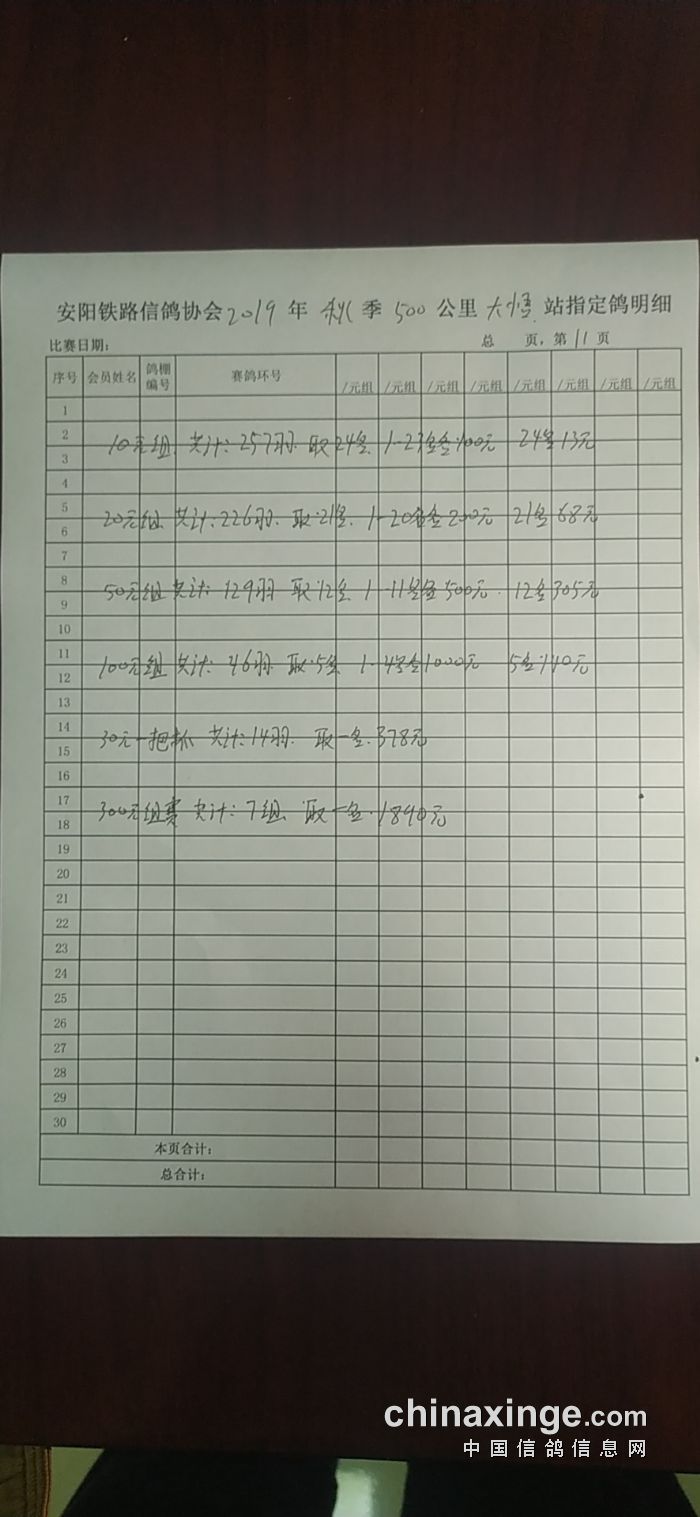 安阳铁路信鸽协会2019年 秋季500公里大悟站指定鸽明细
比赛日期: 总 页,第11页
序号 会员姓名 鸽棚编号 赛鸽环号 /元组 /元组 /元组 /元组 /元组 /元组 /元组 /元组
1
2
10元组 共计:257羽 取24名 1-23名全100元 24名13元
3
4
5
20元组 共计:226羽 取21名 1-20名全200元 21名68元
6
7
8
50元组 共计:129羽 取12名 1-11名全500元 12名305元
9
10
11
100元组 共计:46羽 取5名 1-4名全1000元 5名140元
12
13
14
30元一把抓 共计:14羽 取一名 378元
15
16
17
300元组赛 共计:7组 取一名 1890元
18
19
20
21
22
23
24
25
26
27
28
29
30
本页合计:
总合计:
chinaxinge.com
中国信鸽信息网